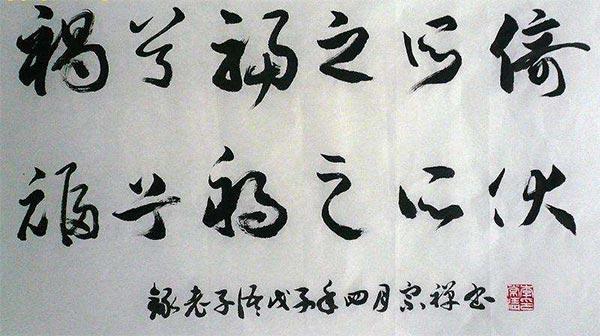 禍兮福之所倚
福兮禍之所伏
錄老子語戊子年四月宗禅书